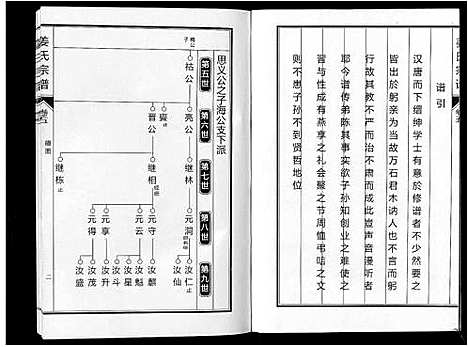 谱引
汉唐而下缙绅学士有意於修谱者不少然要之
皆出於躬亲为当故万石君木讷人也以躬行其
教不严而治然其成此岂声音漫听者
耶今谱传弟陈其事实欲子孙知创业之难使之
皆与性成有燕享之礼会聚之节周恤弔咭之文
则不患子孙不到贤哲地位
姜氏宗谱
卷五
二
思义公之子海公支下派
第五世
第六世
第七世
第八世
第九世
祜公
亮公
襄 止
晋公
继林
继相
继栋 止
元洞
元守
元云
元享
元得
汝仁
汝仙
汝麒
汝魁
汝星
汝斗
汝升
汝茂
汝盛